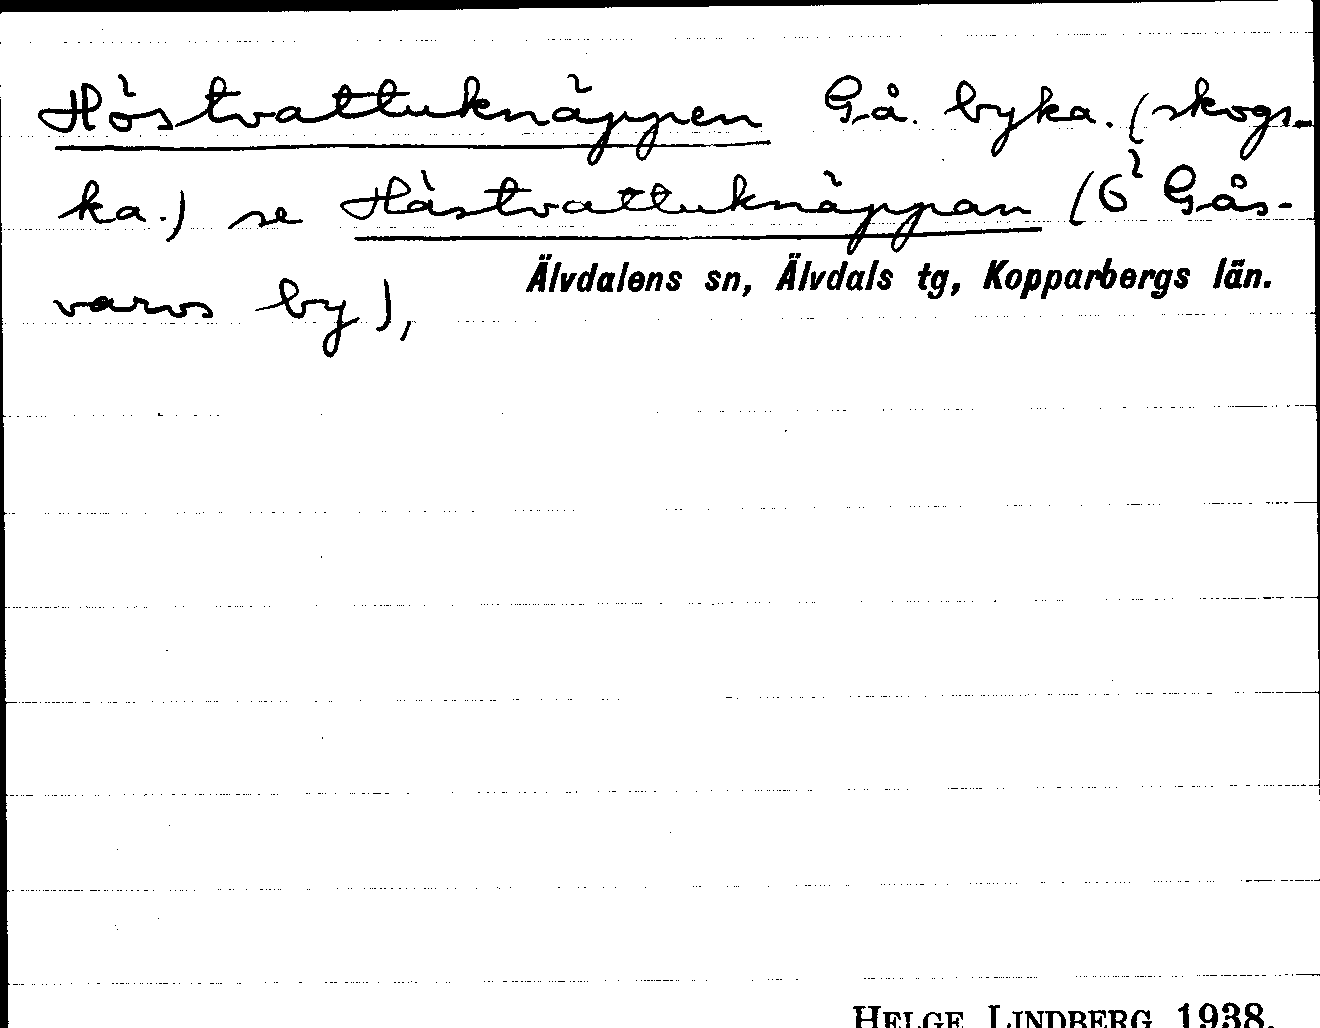 Höstvattuknäppen Gå. byka. (skogs-
ka.) se Håstvattuknäppan (6² Gås-
varvs by),
Älvdalens sn, Älvdals tg, Kopparbergs län.
HELGE LINDBERG 1938.